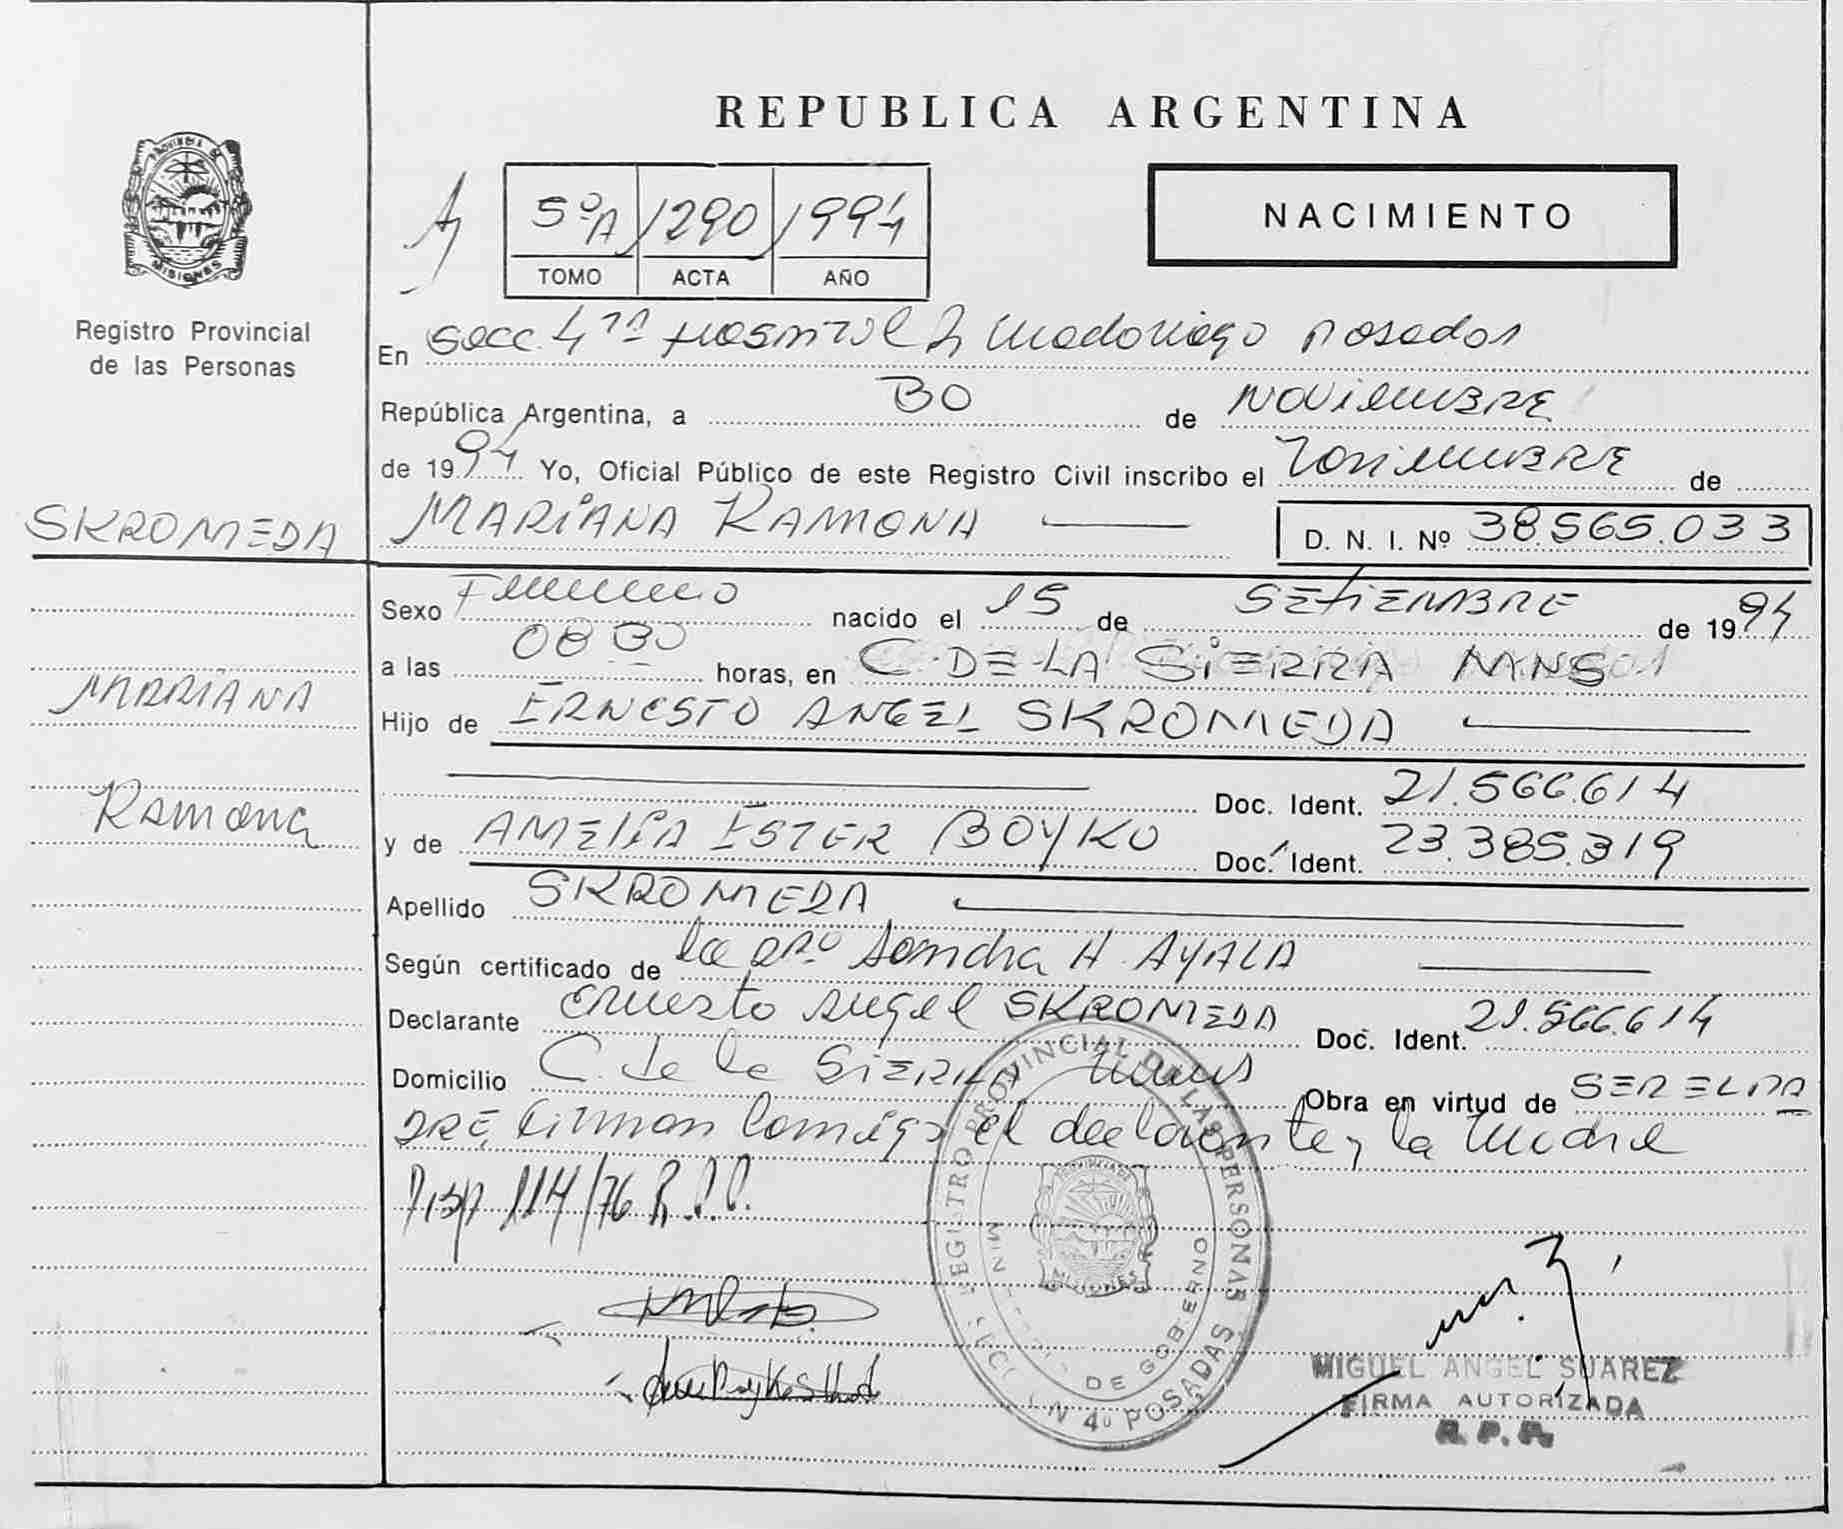 PROVINCIA DE
MISIONES
Registro Provincial
de las Personas
SKROMEDA
MARIANA
Ramona
REPUBLICA ARGENTINA
5ºA 1290 1994
TOMO ACTA AÑO
NACIMIENTO
En Secc 4ta Hospital R Madariaga Posadas
República Argentina, a 30 de NOViEMBRE
de 1994 Yo, Oficial Público de este Registro Civil inscribo el de
MARiANA RAMONA D. N. I. Nº 38.565.033
Sexo Femenino nacido el 15 de SETiEMBRE de 1994
a las 08 30 horas, en C. DE LA SiERRA MNS
Hijo de ERNESTO ANGEL SKROMEDA
Doc. Ident. 21.566.614
y de AMELIA ESTER BOYKO Doc. Ident. 23.385.319
Apellido SKROMEDA
Según certificado de la Sandra H. AYALA
Declarante Ernesto Angel SKROMEDA Doc. Ident. 21.566.614
Domicilio C. de la SiERRA Mnes Obra en virtud de SER EL PA
DRE, firman conmigo el declarante y la Madre
Disp 114/76 R.P.P.
REGISTRO PROVINCIAL DE LAS PERSONAS
MINISTERIO DE GOBIERNO
PROVINCIA DE
MISIONES
SECCION 4º POSADAS
MIGUEL ANGEL SUAREZ
FIRMA AUTORIZADA
R. P. P.